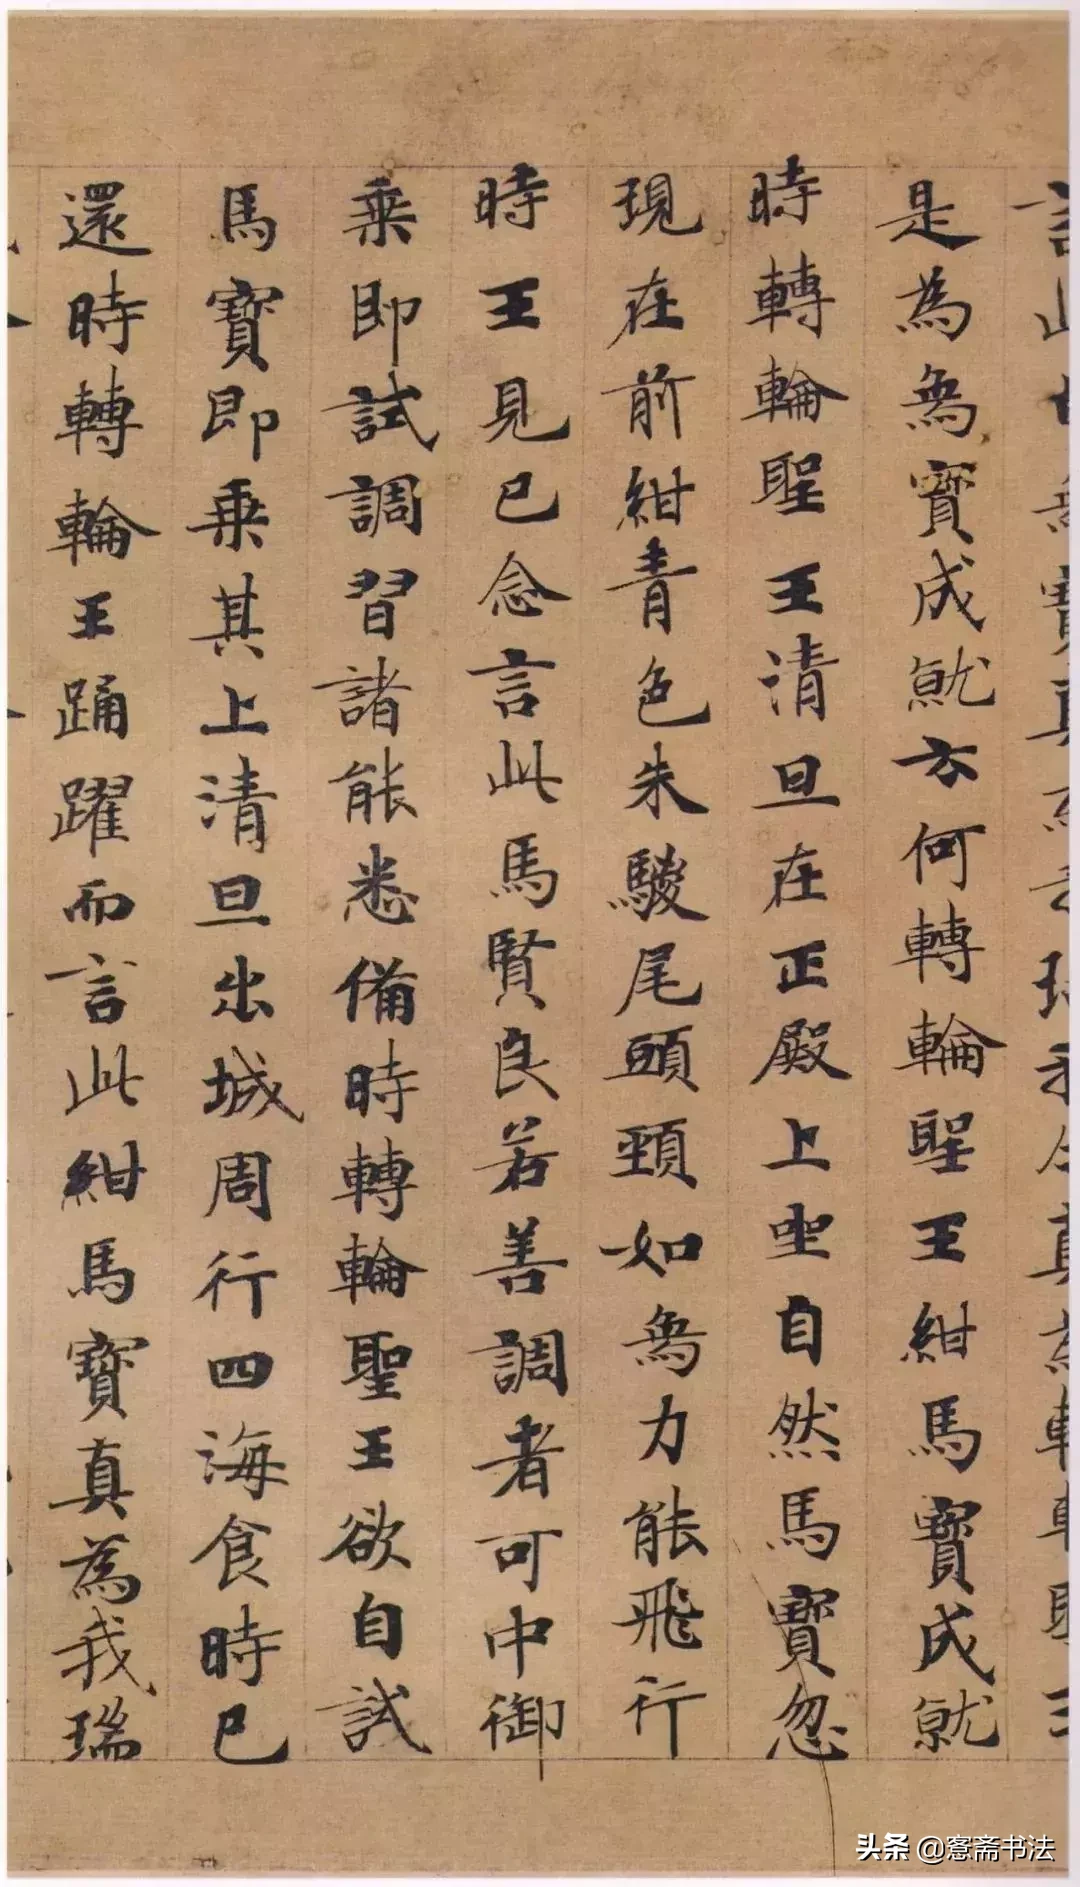 是為烏寶成就云何轉輪聖王紺馬寶成就
時轉輪聖王清旦在正殿上坐自然馬寶忽
現在前紺青色朱騣尾頭頸如烏力能飛行
時王見已念言此馬賢良若善調者可中御
乗即試調習諸能悉備時轉輪聖王欲自試
馬寶即乗其上清旦出城周行四海食時已
還時轉輪王踊躍而言此紺馬寶真為我瑞
头条 @窓斋书法